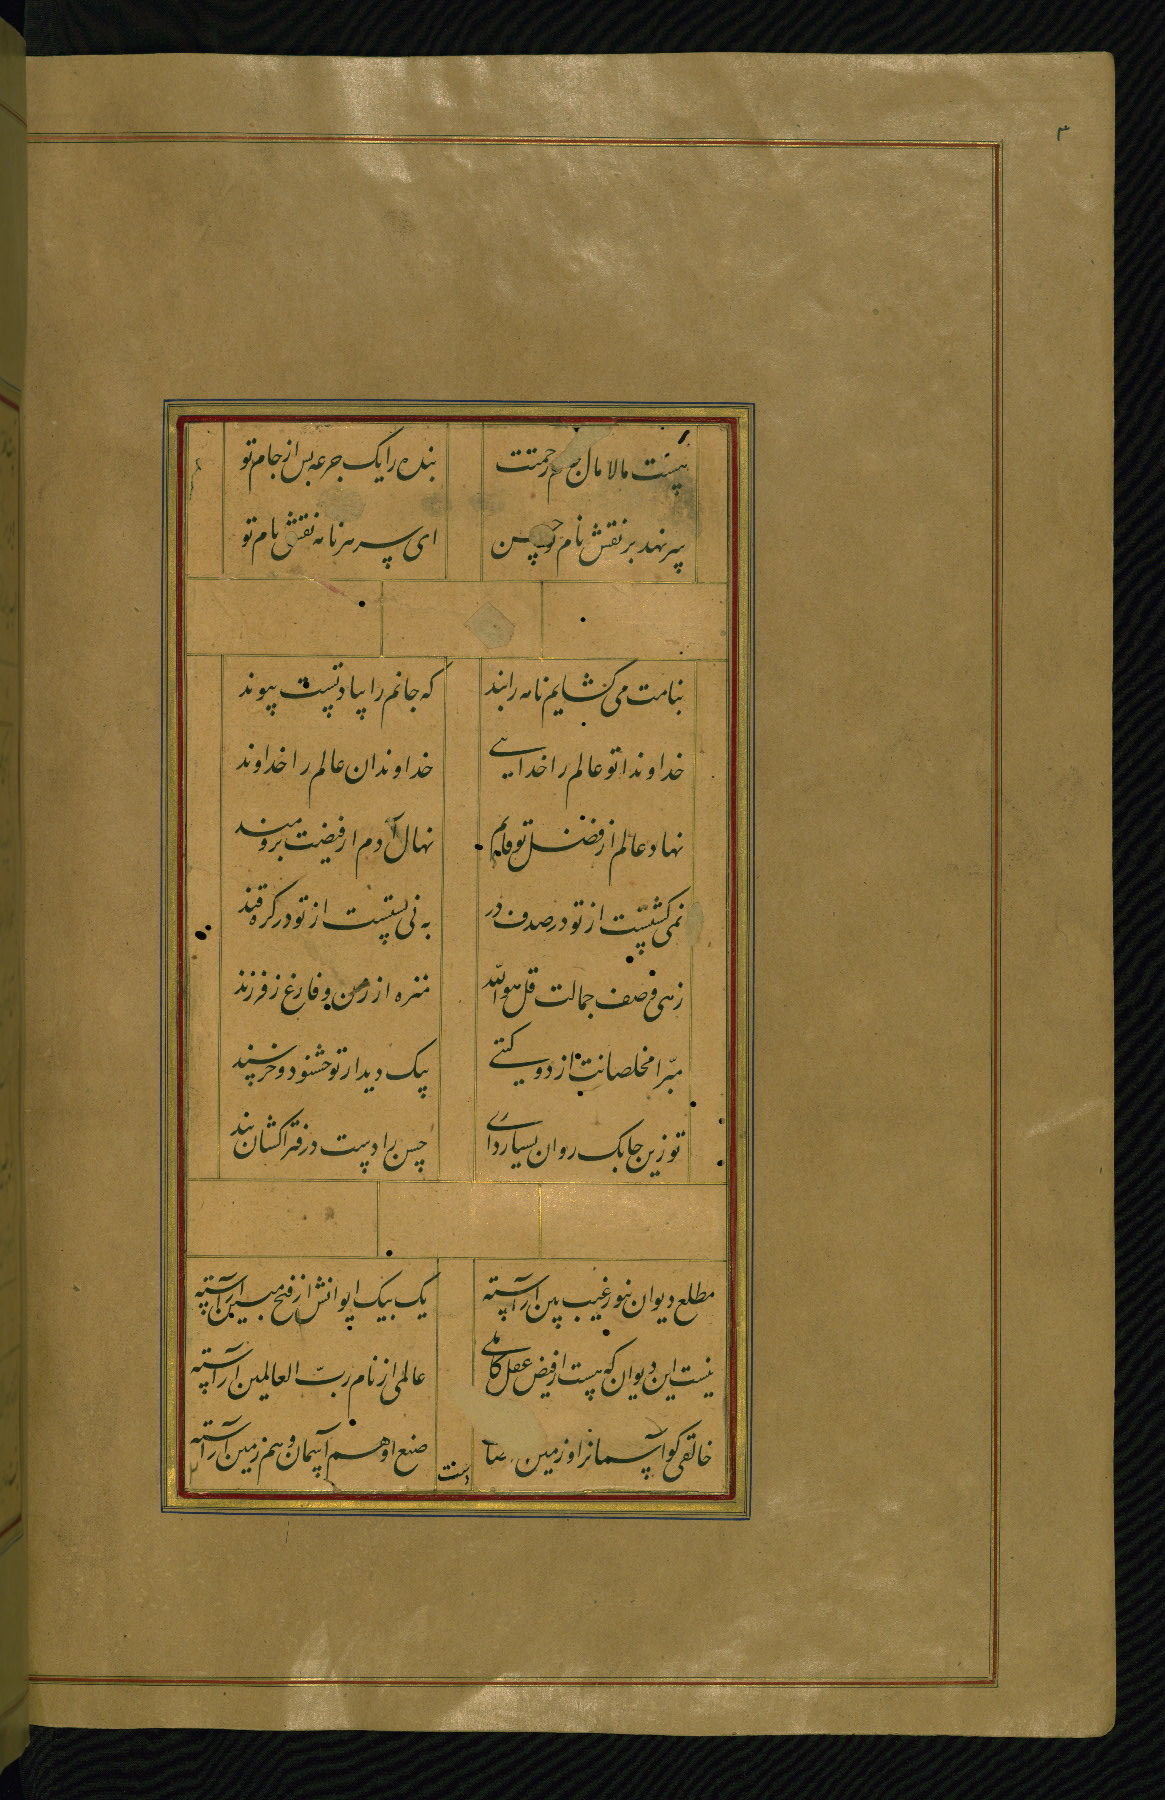 ۳
هست مالامال رحمتت بنده را یک جرعه بس از جام تو
سر نهد بر نقش نام تو حسن ای سر هر نامه نقش نام تو
بنامت می گشایم نامه را بند که جانم را بیادتست پیوند
خداوندا تو عالم را خدایی خداوندان عالم را خداوند
نهاد عالم از فضل تو قایم نهال آدم از فیضت برومند
نمی گشتست از تو در صدف در به نی بستست از تو در گره قند
زهی وصف جمالت قل هو الله منزه از زن و فارغ ز فرزند
مبرا مخلصانت از دو گیتی بیک دیدار تو خشنود و خرسند
تو زین چابک روان بسیار داری حسن را دست در فتراکشان بند
مطلع دیوان بنور غیب بین آراسته یک بیک ایوانش از فتح مبین آراسته
نیست این دیوان که هست از فیض عقل کاملی عالمی از نام رب العالمین آراسته
خالقی کو آسمانرا و زمین صنع او هم آسمان و هم زمین آراسته
دست